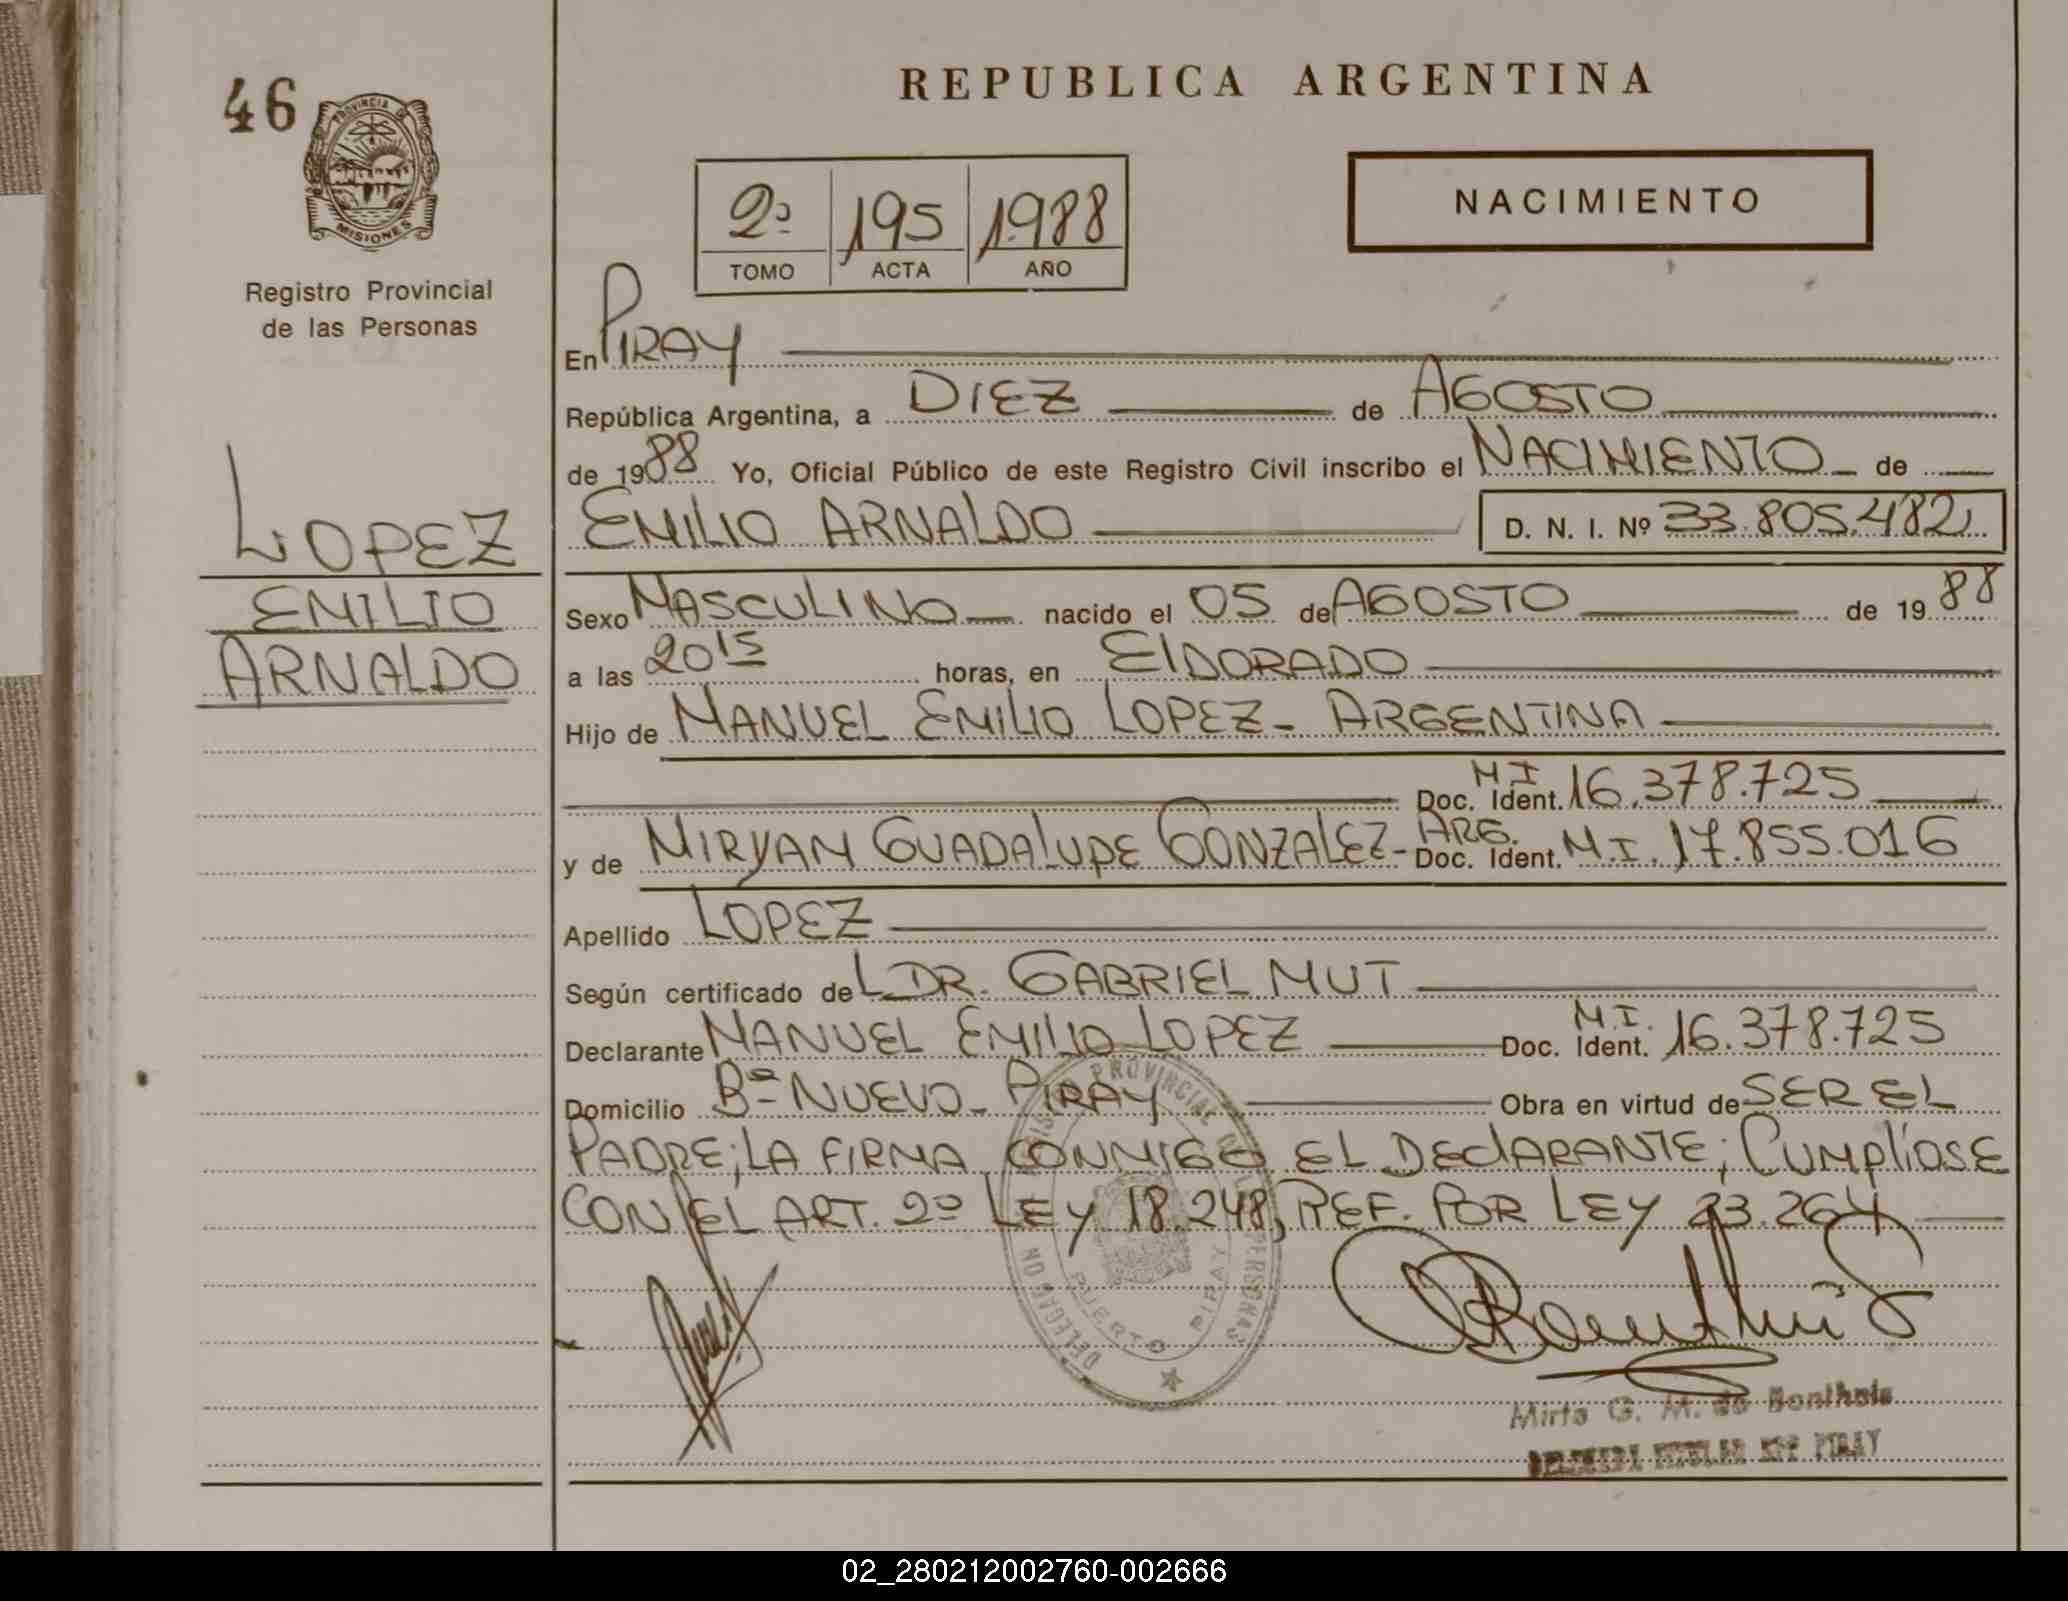 46
PROVINCIA DE
MISIONES
Registro Provincial
de las Personas
LOPEZ
EMILIO
ARNALDO
REPUBLICA ARGENTINA
2º 195 1988
TOMO ACTA AÑO
NACIMIENTO
En PIRAY
República Argentina, a DIEZ de AGOSTO
de 1988 Yo, Oficial Público de este Registro Civil inscribo el NACIMIENTO de
EMILIO ARNALDO D. N. I. Nº 33.805.482
Sexo MASCULINO nacido el 05 de AGOSTO de 1988
a las 20 15 horas, en ElDORADO
Hijo de MANUEL EMILIO LOPEZ - ARGENTINA
Doc. Ident. M I 16.378.725
y de MIRYAM GUADALUPE GONZALEZ - ARG. Doc. Ident. M.I. 17.855.016
Apellido LOPEZ
Según certificado del DR. GABRIEL MUT
Declarante MANUEL EMILIO LOPEZ Doc. Ident. M.I. 16.378.725
Domicilio Bº NUEVO - PIRAY Obra en virtud de SER EL
PADRE; LA FIRMA CONMIGO EL DEClARANTE; CUMPlIOSE
CON EL ART. 2º LEY 18.248, REF. POR LEY 23.264
REGISTRO PROVINCIAL DE LAS PERSONAS
DELEGACION
PUERTO PIRAY
Mirta G. M. de Bonthuis
PIRAY
02_280212002760-002666